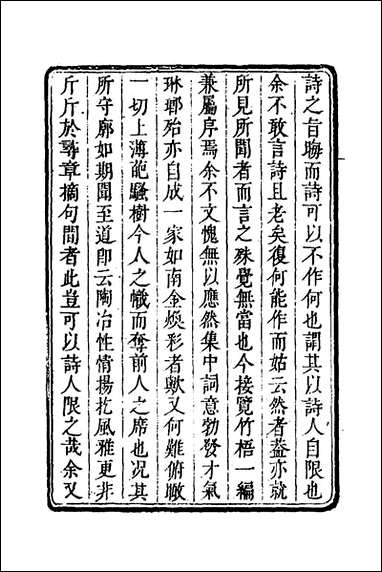 詩之旨聯而詩可以不作何也謂其以詩人自限也
余不敢言詩且老矣復何能作而姑云然者葢亦就
所見所聞者而言之殊覺無當也今接覽竹梧一編
兼屬序焉余不文愧無以應然集中詞意勃發才氣
琳瑯殆亦自成一家如南金煥彩者歟又何難俯瞰
一切上溥葩騷樹今人之幟而奪前人之席也况其
所守廓如期聞至道卽云陶冶性情揚扢風雅更非
斤斤於尋章摘句間者此豈可以詩人限之哉余又